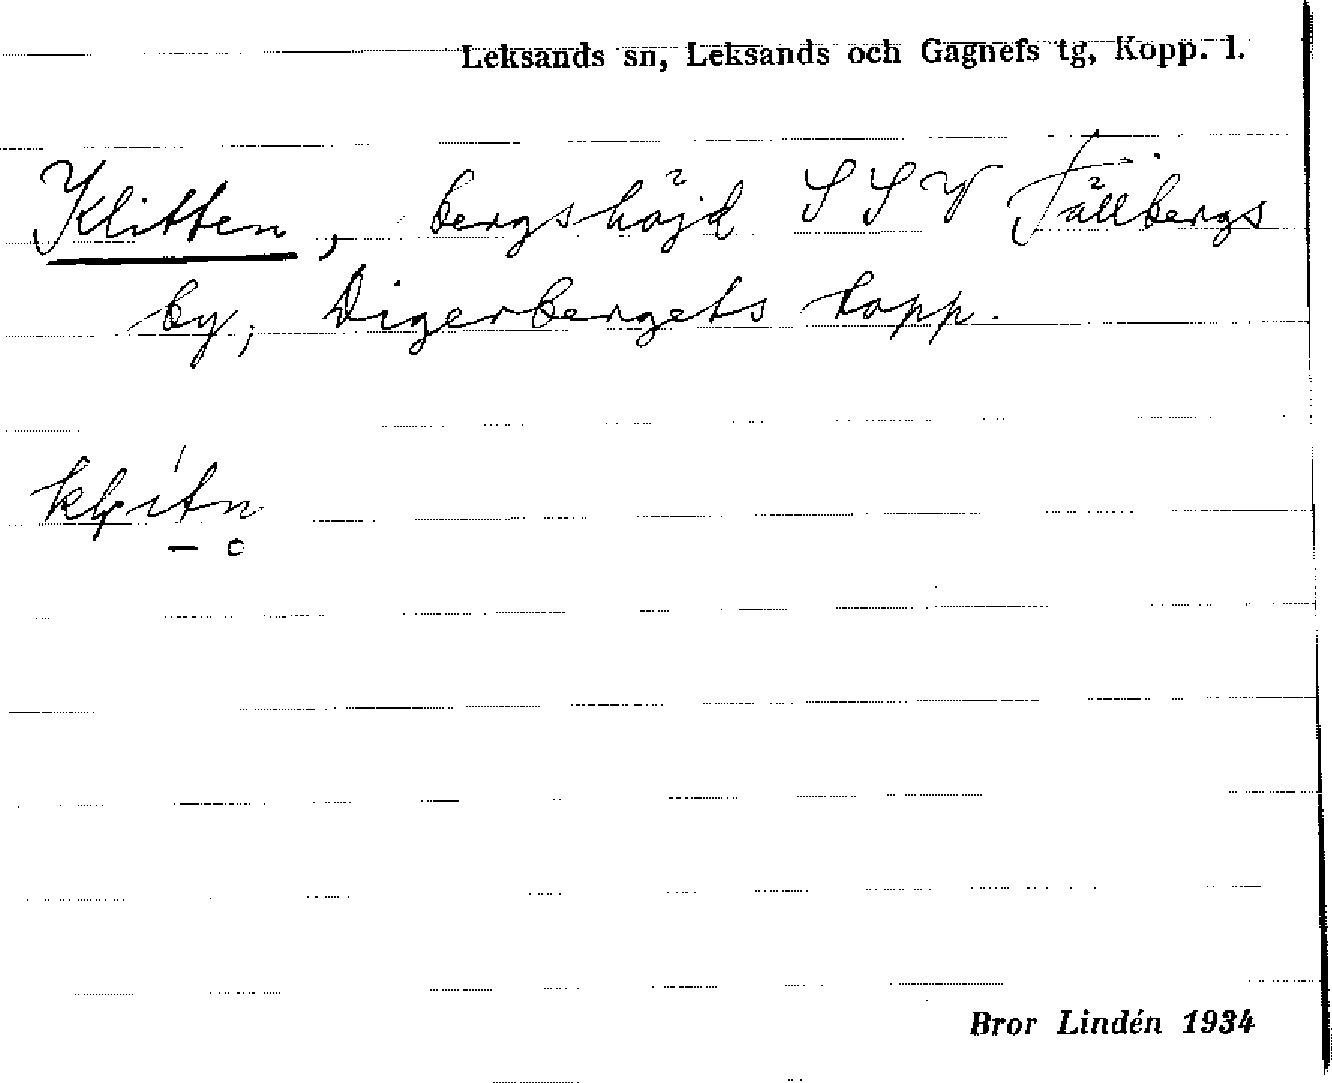 Leksands sn, Leksands och Gagnefs tg, Kopp. l.
Klitten, bergshöjd SSV Tällbergs
by, Digerbergets topp.
Bror Lindén 1934